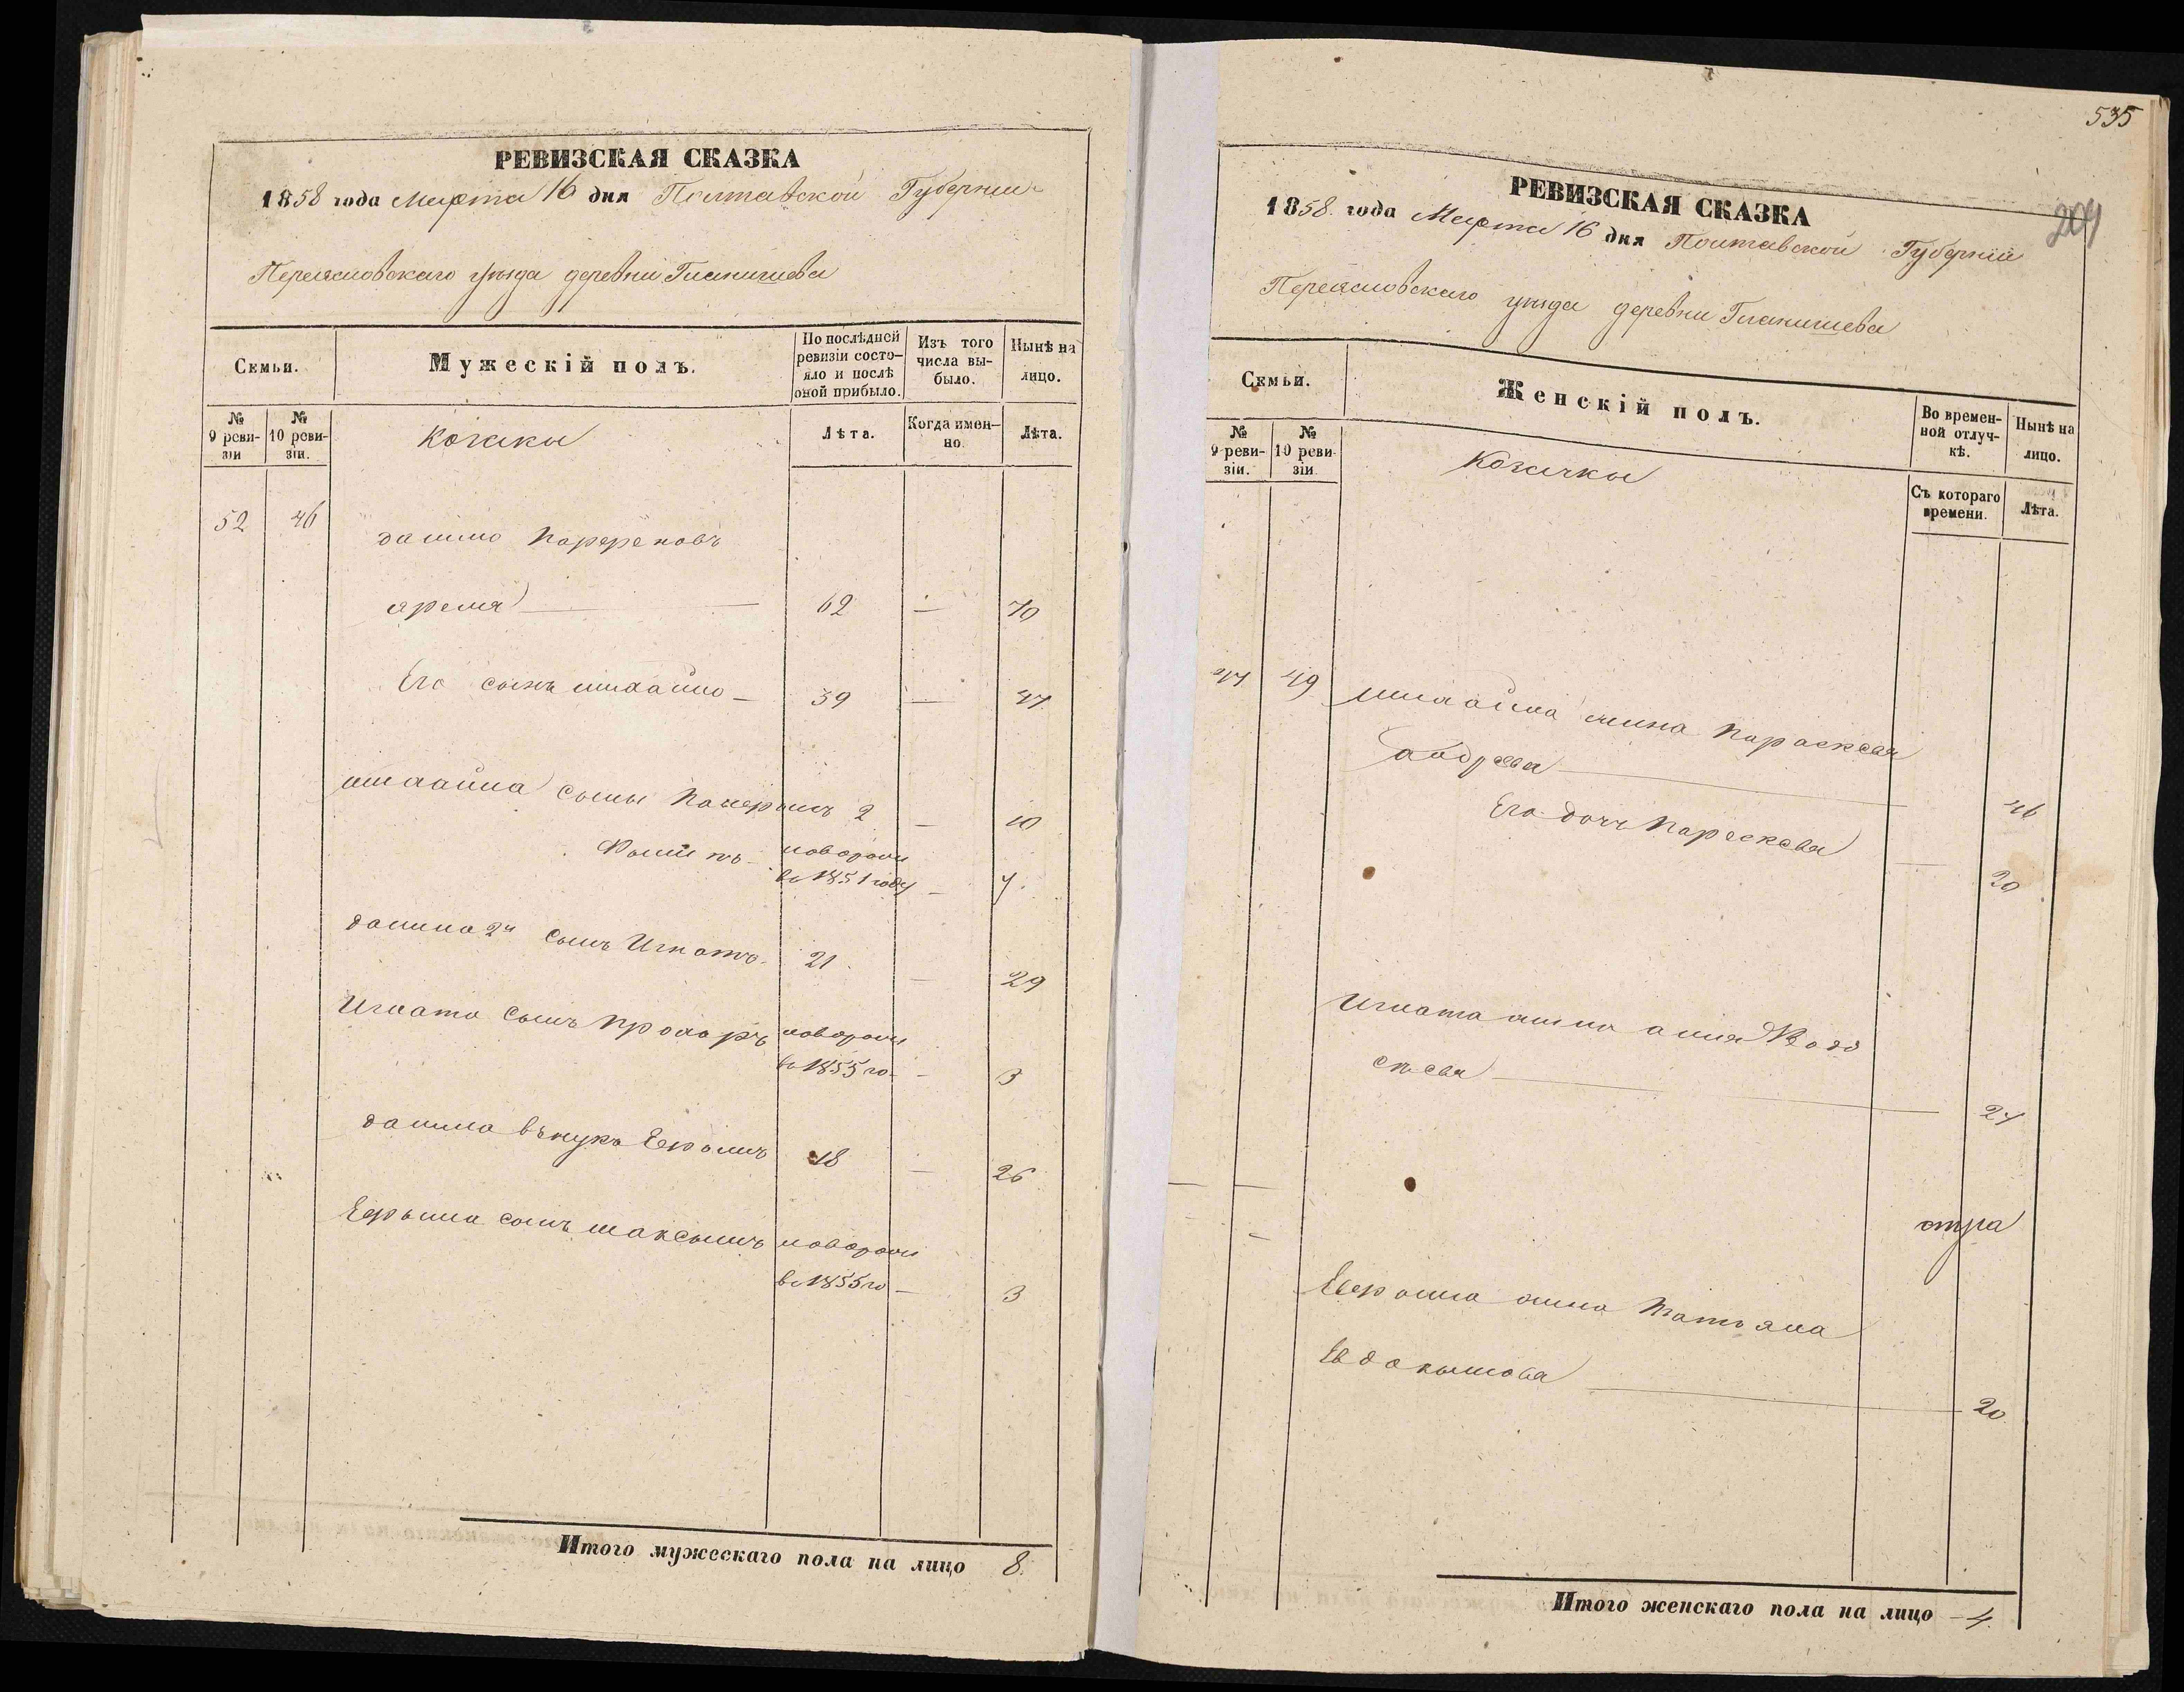 РЕВИЗСКАЯ СКАЗКА
1858 года Марта 16 дня Полтавской Губернии
Переясловскаго уезда деревни Гланишева
Семьи.
Мужескій полъ.
По послѣдней ревизіи состояло и послѣ оной прибыло.
Изъ того числа выбыло.
Нынѣ на лицо.
№ 9 ревизіи
№ 10 ревизіи.
Козаки
Лѣта.
Когда именно.
Лѣта.
52 46
данило
ярема 62 — 70
Его сынъ михайло — 39 — 47
михайла сыны 2 — 10
новорож
во 1851 году — 7.
данила 2й сынъ Игнатъ. 21 — 29
Игната сынъ прохоръ новорож
во 1855 го — 3
данила внукъ 18 — 26
сынъ максымъ новорож
во 1855 го — 3
Итого мужескаго пола на лицо 8.
535
204
РЕВИЗСКАЯ СКАЗКА
1858. года Марта 16 дня Полтавской Губернии
Переясловскаго уезда деревни Гланишева
Семьи.
Женскій полъ.
Во временной отлучкѣ.
Нынѣ на лицо.
№ 9 ревизіи.
№ 10 ревизіи
Козачки
Съ котораго времени.
Лѣта.
49 михайла жина параскева
46
Его дочъ параскева — 20
Игната жина
24
жина татьяна
Евдокымова — 20
Итого женскаго пола на лицо — 4.